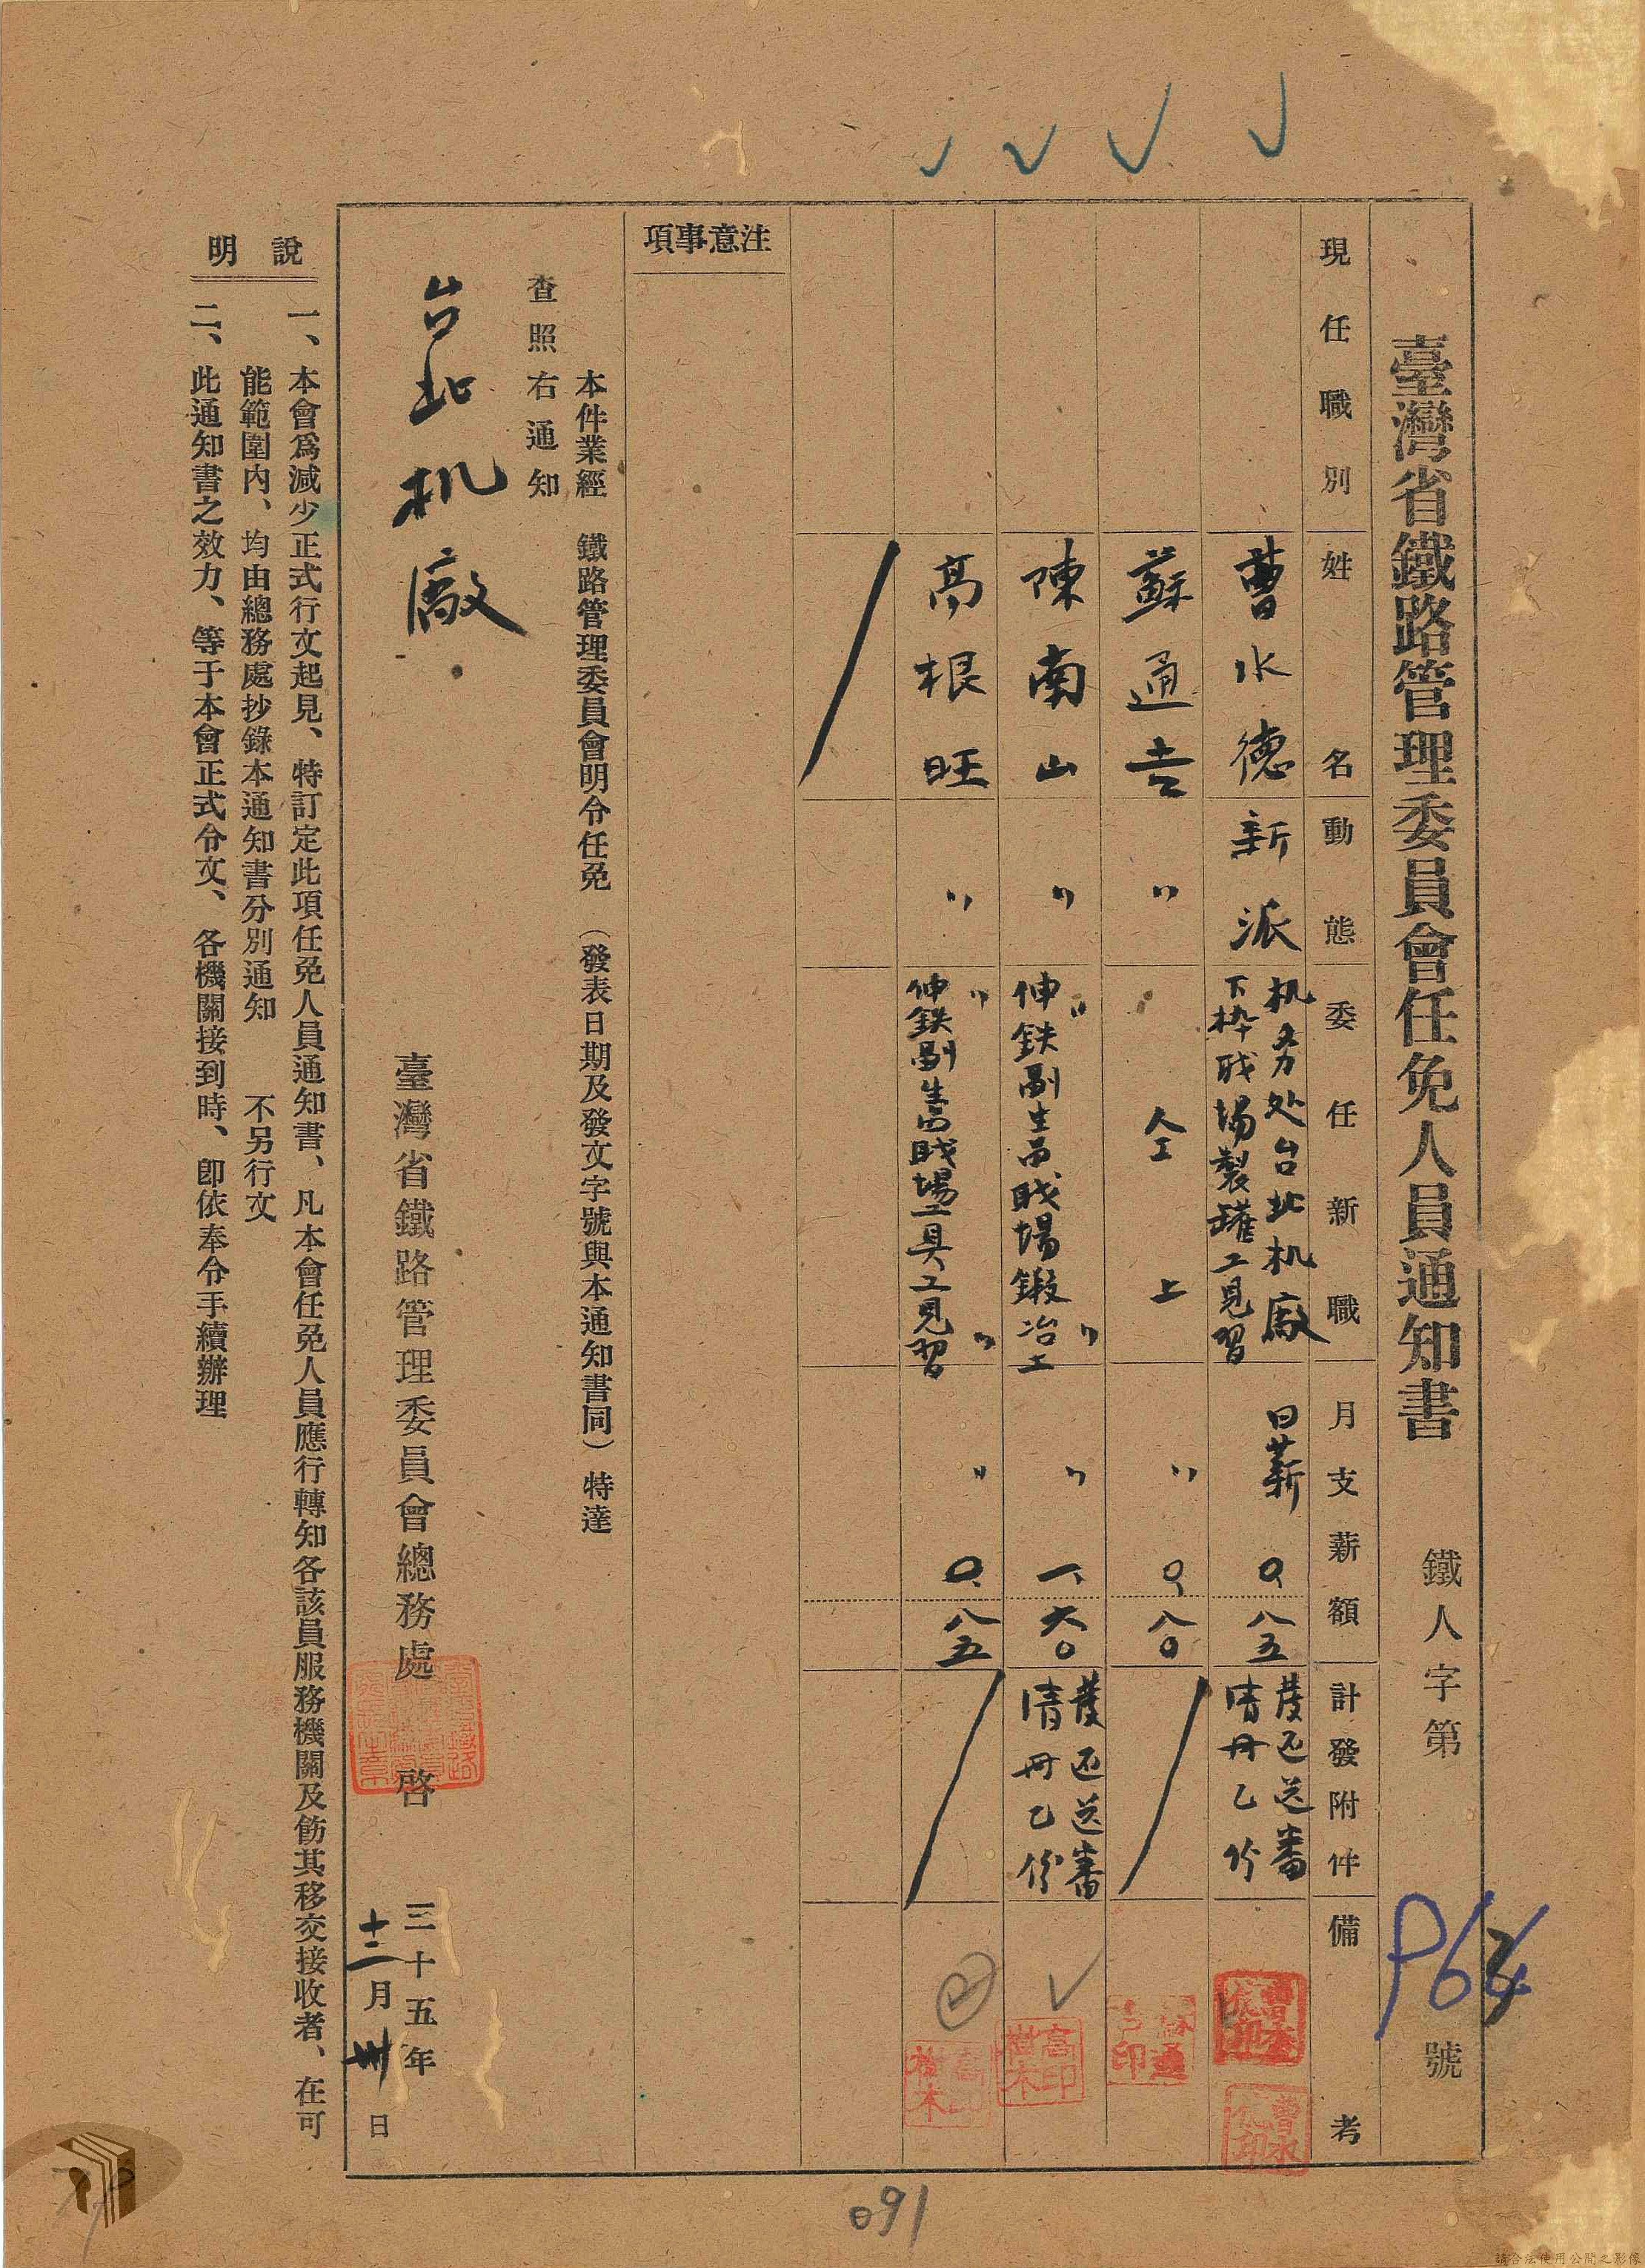 臺灣省鐵路管理委員會任免人員通知書
鐵人字第 號
P64
現任職別 姓名 動態 委任新職 月支薪額 計發附件 備考
曹水德 新派 机务处台北机廠
下枠戝場製罐工見習 日薪 0.八五 發还送審
清册乙份
蘇通吉 〃 仝上 〃 0.八0
陳南山 〃 〃 〃
伸鉄副生品戝場鍛冶工 〃 一.六0 發还送審
清册乙份
高根旺 〃 〃 〃
伸鉄副生品戝場工具工見習 〃 0.八五
注意事項
本件業經 鐵路管理委員會明令任免 (發表日期及發文字號與本通知書同) 特達
查照右通知
台北机廠
臺灣省鐵路管理委員會總務處 啓
三十五年
十二月卅日
說明
一、本會爲減少正式行文起見、特訂定此項任免人員通知書、凡本會任免人員應行轉知各該員服務機關及飭其移交接收者、在可
能範圍內、均由總務處抄錄本通知書分別通知 不另行文
二、此通知書之效力、等于本會正式令文、各機關接到時、卽依奉令手續辦理
高印樹木
091
請合法使用公開之影像